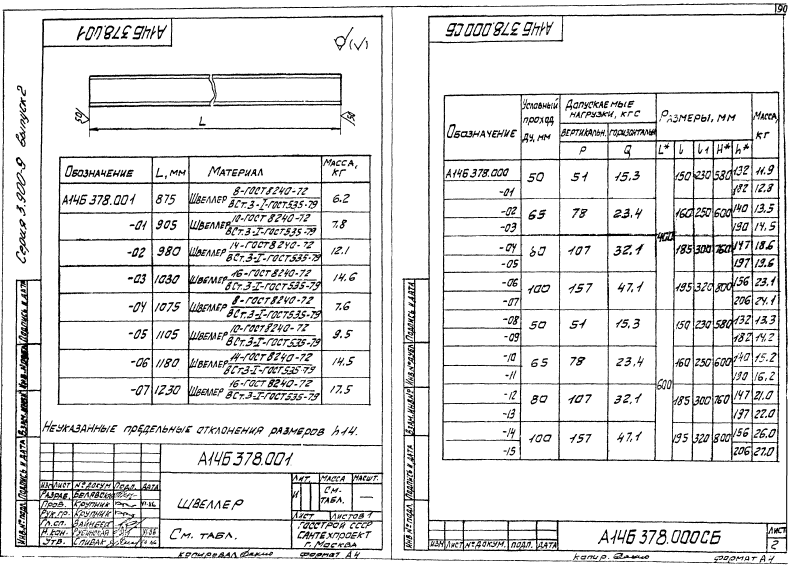 90
А14Б 378.001
√(√)
Серия 3.900-9 выпуск 2
50
50
L
Обозначение L, мм Материал Масса, кг
А14Б 378.001 875 Швеллер 8-ГОСТ 8240-72 / ВСт.3-I-ГОСТ 535-79 6.2
-01 905 Швеллер 10-ГОСТ 8240-72 / ВСт.3-I-ГОСТ 535-79 7.8
-02 980 Швеллер 14-ГОСТ 8240-72 / ВСт.3-I-ГОСТ 535-79 12.1
-03 1030 Швеллер 16-ГОСТ 8240-72 / ВСт.3-I-ГОСТ 535-79 14.6
-04 1075 Швеллер 8-ГОСТ 8240-72 / ВСт.3-I-ГОСТ 535-79 7.6
-05 1105 Швеллер 10-ГОСТ 8240-72 / ВСт.3-I-ГОСТ 535-79 9.5
-06 1180 Швеллер 14-ГОСТ 8240-72 / ВСт.3-I-ГОСТ 535-79 14.5
-07 1230 Швеллер 16-ГОСТ 8240-72 / ВСт.3-I-ГОСТ 535-79 17.5
Неуказанные предельные отклонения размеров h14.
Инв.№ подл. Подпись и дата Взам.инв.№ Инв.№ дубл. Подпись и дата
А14Б 378.001
Изм Лист № докум Подп. Дата
Разраб. Белявск
Пров. Крупник VI-86
Рук.гр. Крупник
Гл.сп.
Н.кон. VI.86
Утв. Спивак
Швеллер
См. табл.
Лит. Масса Масшт.
И См. табл. —
Лист Листов 1
Госстрой СССР
Сантехпроект
г. Москва
Копировал
Формат А4
А14Б 378.000СБ
Обозначение Условный проход Ду, мм Допускаемые нагрузки, кгс Размеры, мм Масса, кг
вертикальн. P горизонтальн. Q L* l l1 H* h*
А14Б 378.000 50 51 15.3 400 150 230 580 132 11.9
-01 182 12.8
-02 65 78 23.4 160 250 600 140 13.5
-03 190 14.5
-04 80 107 32.1 185 300 760 147 18.6
-05 197 19.6
-06 100 157 47.1 195 320 800 156 23.1
-07 206 24.1
-08 50 51 15.3 600 150 230 580 132 13.3
-09 182 14.2
-10 65 78 23.4 160 250 600 140 15.2
-11 190 16.2
-12 80 107 32.1 185 300 760 147 21.0
-13 197 22.0
-14 100 157 47.1 195 320 800 156 26.0
-15 206 27.0
Инв.№ подл. Подпись и дата Взам.инв.№ Инв.№ дубл. Подпись и дата
Изм Лист № докум. Подп. Дата
А14Б 378.000СБ
Лист
2
Копир.
Формат А4